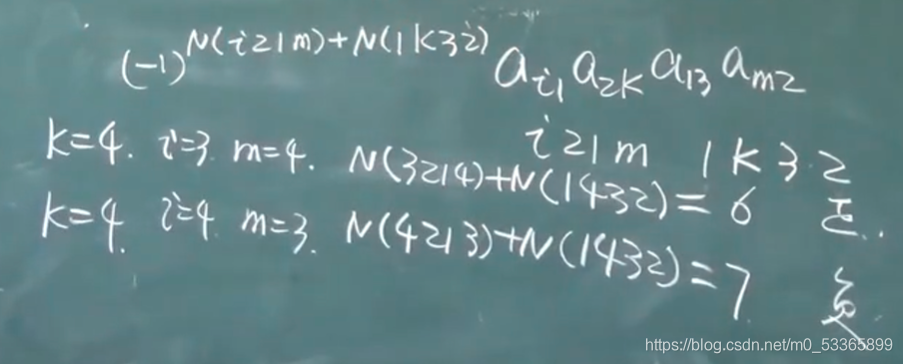 (-1)^{N(i21m)+N(1k32)} a_{i1} a_{2k} a_{13} a_{m2}
i21m 1k32
k=4. i=3. m=4. N(3214)+N(1432)=6 正..
k=4. i=4 m=3. N(4213)+N(1432)=7 负
https://blog.csdn.net/m0_53365899